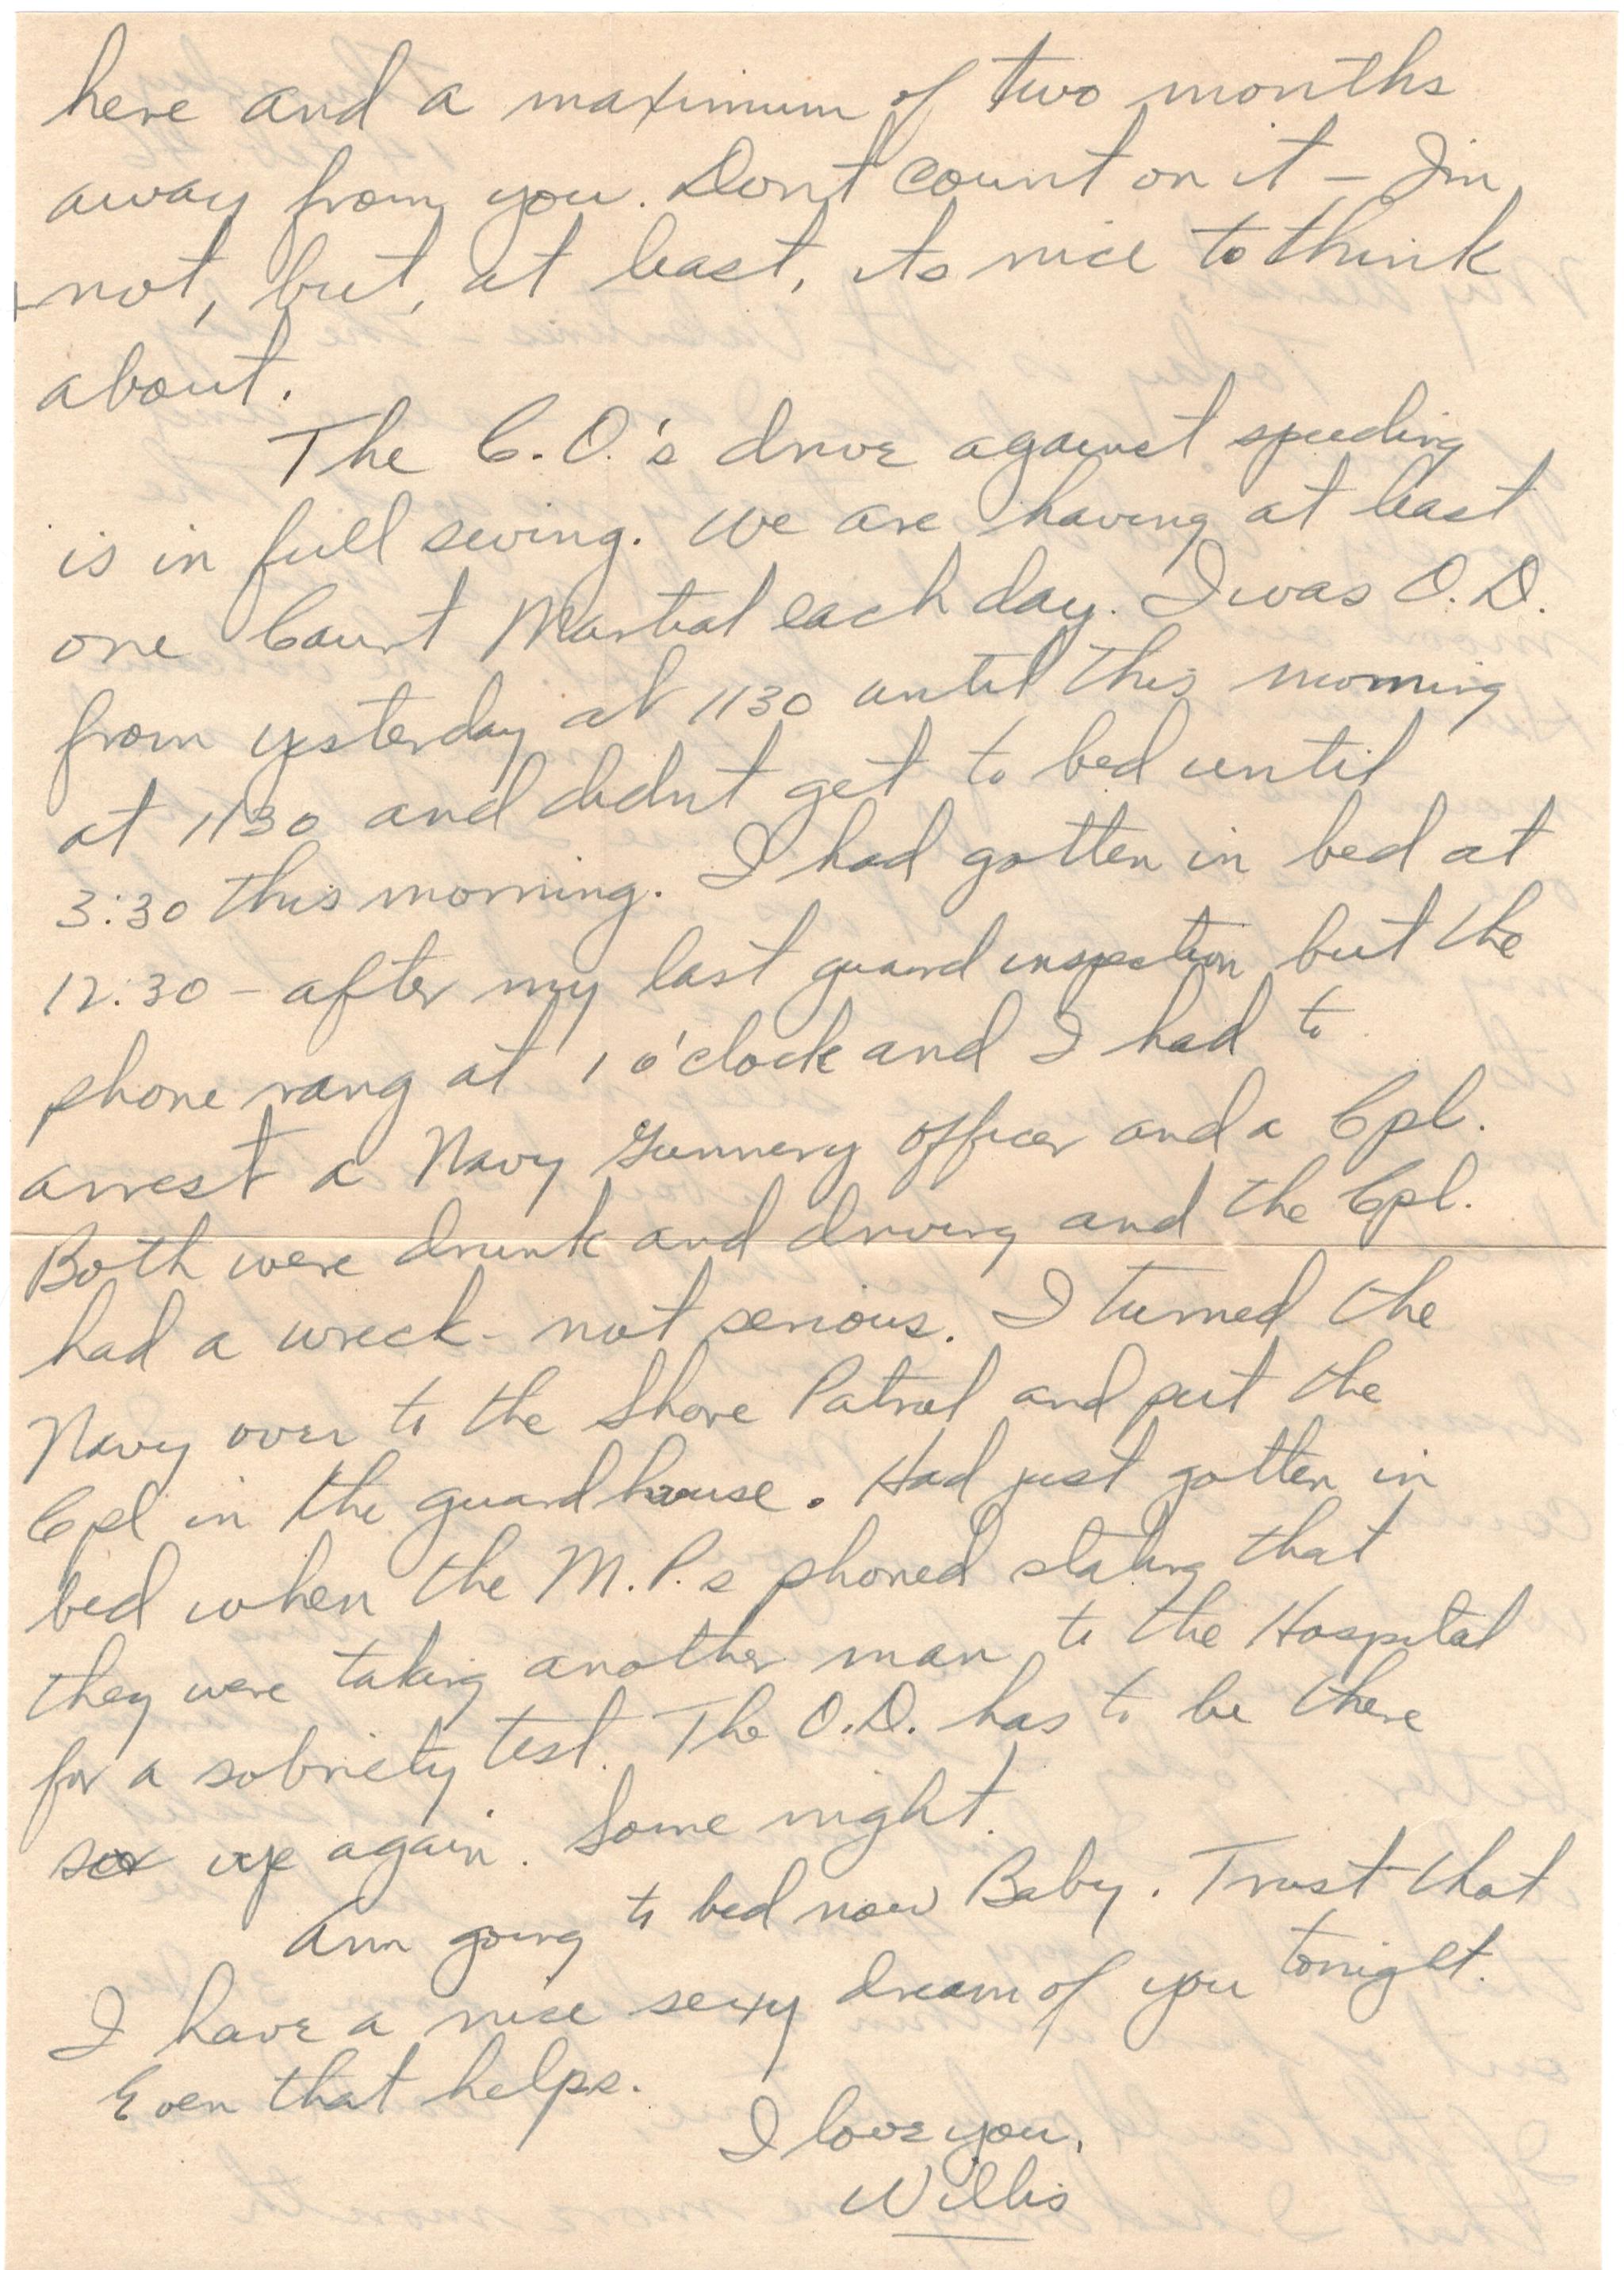 here and a maximum of two months
away from you. Dont count on it – Im
not, but, at least, its nice to think
about.
The C.O.'s drive against speeding
is in full swing. We are having at least
one Court Martial each day. I was O.D.
from yesterday at 1130 until this morning
at 1130 and didnt get to bed until
3:30 this morning. I had gotten in bed at
12:30 – after my last guard inspection but the
phone rang at 1 o'clock and I had to
arrest a Navy Gunnery officer and a Cpl.
Both were drunk and driving and the Cpl.
had a wreck - not serious. I turned the
Navy over to the Shore Patrol and put the
Cpl in the guardhouse. Had just gotten in
bed when the M.P.s phoned stating that
they were taking another man to the Hospital
for a sobriety test. The O.D. has to be there
so up again. Some night.
Am going to bed now Baby. Trust that
I have a nice sexy dream of you tonight.
Even that helps.
I love you,
Willis